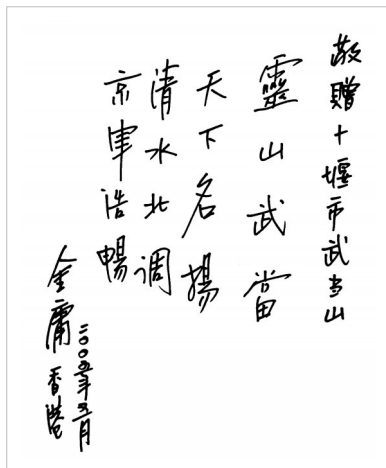 敬贈十堰市武当山
靈山武當
天下名揚
清水北调
京軍浩暢
二〇〇五年五月
金庸香港